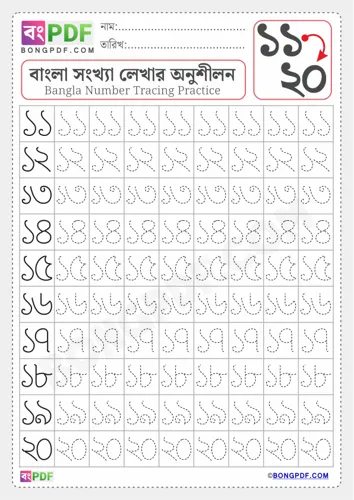 বংPDF
BONGPDF.COM
নাম:
তারিখ:
১১
২০
বাংলা সংখ্যা লেখার অনুশীলন
Bangla Number Tracing Practice
১১ ১১ ১১ ১১ ১১ ১১ ১১ ১১ ১১
১২ ১২ ১২ ১২ ১২ ১২ ১২ ১২ ১২
১৩ ১৩ ১৩ ১৩ ১৩ ১৩ ১৩ ১৩ ১৩
১৪ ১৪ ১৪ ১৪ ১৪ ১৪ ১৪ ১৪ ১৪
১৫ ১৫ ১৫ ১৫ ১৫ ১৫ ১৫ ১৫ ১৫
১৬ ১৬ ১৬ ১৬ ১৬ ১৬ ১৬ ১৬ ১৬
১৭ ১৭ ১৭ ১৭ ১৭ ১৭ ১৭ ১৭ ১৭
১৮ ১৮ ১৮ ১৮ ১৮ ১৮ ১৮ ১৮ ১৮
১৯ ১৯ ১৯ ১৯ ১৯ ১৯ ১৯ ১৯ ১৯
২০ ২০ ২০ ২০ ২০ ২০ ২০ ২০ ২০
বংPDF
©BONGPDF.COM